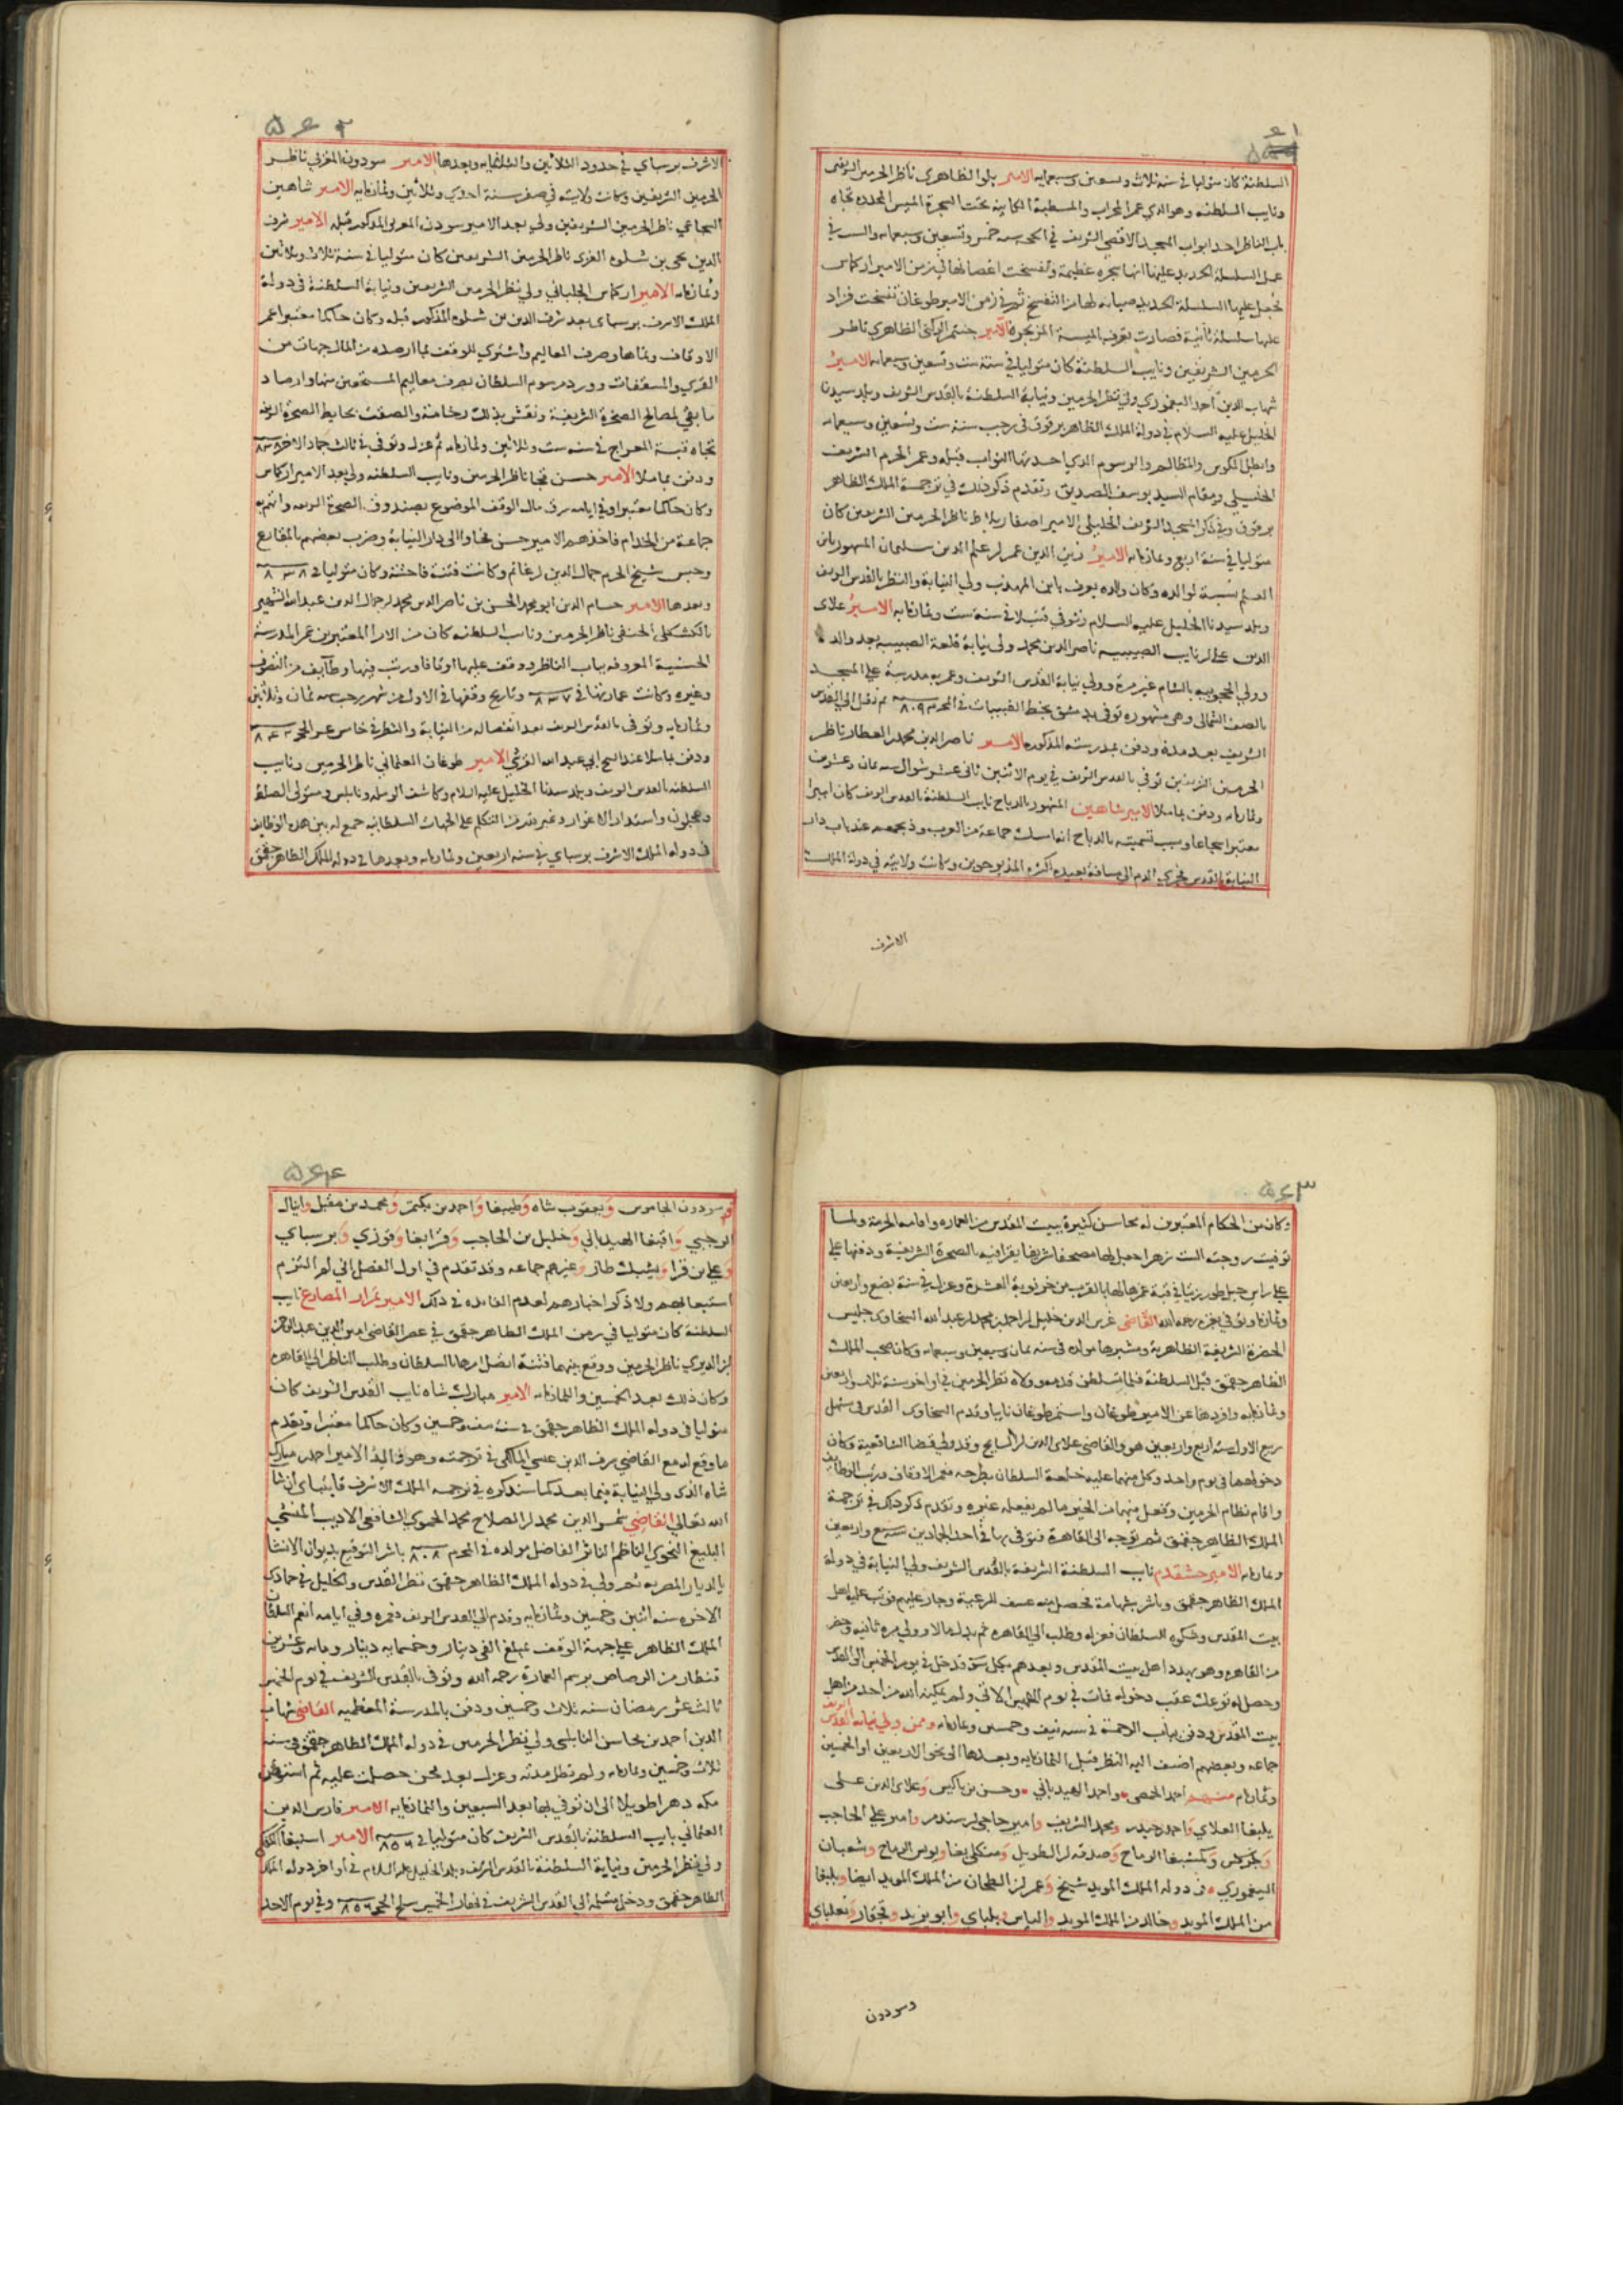 ٥٦١
السلطنة كان متوليا في سنة ثلاث وتسعين وسبعمايه الامير بلوا الظاهري ناظر الحرمين الشريفين
ونايب السلطنه وهو الذي عمر المحراب والمسطبة الكاينة تحت الشجرة الميس المجدده تجاه
باب الناظر احد ابواب المسجد الاقصى الشريف في سنه خمس وتسعين وسبعمايه والسبب في
عمل السلسلة الحديد عليها انها شجره عظيمة وتفسخت اغصانها في زمن الامير اركماس
فجعل عليها السلسلة الحديد صيانه لها من التفسخ ثم في زمن الامير طوغان تفسخت فزاد
عليها سلسلة ثانية فصارت تعرف بالميسة المزنجرة الامير جنتمر الركني الظاهري ناظر
الحرمين الشريفين ونايب السلطنة كان متوليا في سنة ست وتسعين وسبعمايه الامير
شهاب الدين احمد اليغموري ولي نظر الحرمين ونيابة السلطنة بالقدس الشريف وبلد سيدنا
الخليل عليه السلام في دولة الملك الظاهر برقوق في رجب سنة ست وتسعين وسبعمايه
وابطل المكوس والمظالم والرسوم الذي احدثها النواب قبله وعمر الحرم الشريف
الخليلي ومقام السيد يوسف الصديق وتقدم ذكر ذلك في ترجمة الملك الظاهر
برقوق وفي ذكر المسجد الشريف الخليلي الامير اصفا ربلاط ناظر الحرمين الشريفين كان
متوليا في سنة اربع وثمانمايه الامير زين الدين عمر بن علم الدين سليمان المشهور بابن
العلم نسبة لوالده وكان والده يعرف بابن المهذب ولي النيابة والنظر بالقدس الشريف
وبلد سيدنا الخليل عليه السلام وتوفي قتيلا في سنة ست وثمانمايه الامير علاي
الدين علي بن نايب الصبيبه ناصر الدين محمد ولي نيابة قلعة الصبيبه بعد والده
وولي الحجوبيه بالشام غير مرة وولي نيابة القدس الشريف وعمر به مدرسة علي المسجد
بالصف الشمالي وهي مشهوره توفي بدمشق بخط القبيبات في المحرم سنه ٨٠٩ ثم نقل الى القدس
الشريف بعد مدة ودفن بمدرسته المذكوره الامير ناصر الدين محمد بن العطار ناظر
الحرمين الشريفين توفي بالقدس الشريف في يوم الاثنين ثاني عشر شوال سنه ثمان وعشرين
وثمانمايه ودفن بماملا الامير شاهين المشهور بالدباح نايب السلطنة بالقدس الشريف كان اميرا
معتبرا شجاعا وسبب تسميته بالدباح انه امسك جماعة من العرب وذبحهم عند باب دار
النيابة بالقدس فجري الدم الى مسافة بعيده لكثرة المذبوحين وكانت ولايته في دولة الملك
الاشرف
٥٦٢
الاشرف برسباي في حدود الثلاثين والثمانمايه وبعدها الامير سودون المغربي ناظر
الحرمين الشريفين وكانت ولايته في صفر سنة احدي وثلاثين وثمانمايه الامير شاهين
الشجاعي ناظر الحرمين الشريفين ولي بعد الامير سودون المغربي المذكور قبله الامير شرف
الدين يحيى بن شلوه الغزي ناظر الحرمين الشريفين كان متوليا في سنة ثلاث وثلاثين
وثمانمايه الامير اركماس الجلباني ولي نظر الحرمين الشريفين ونيابة السلطنة في دولة
الملك الاشرف برسباي بعد شرف الدين بن شلوه المذكور قبله وكان حاكما معتبرا عمر
الاوقاف ونماها وصرف المعاليم واشتري للوقف مما ارصده من المال جهات من
القري والمسقفات وورد مرسوم السلطان بصرف معاليم المستحقين منها وارصاد
ما بقي لمصالح الصخرة الشريفة ونقش بذلك رخامة والصقت بحايط الصخرة الشريفة
تجاه قبة المعراج في سنه ست وثلاثين وثمانمايه ثم عزل وتوفي في ثالث جماد الاخر سنه ٨٣٨
ودفن بماملا الامير حسن قجا ناظر الحرمين ونايب السلطنه ولي بعد الامير اركماس
وكان حاكما معتبرا وفي ايامه سرق مال الوقف الموضوع بصندوق الصخرة الشريفه واتهم به
جماعة من الخدام فاخذهم الامير حسن قجا والى دار النيابة وضرب بعضهم بالمقارع
وحبس شيخ الحرم جمال الدين بن غانم وكانت فتنة فاحشة وكان متوليا في سنه ٨٣٨
وبعدها الامير حسام الدين ابو محمد الحسن بن ناصر الدين محمد بن جمال الدين عبد الله الشهير
بالكشكلي الحنفي ناظر الحرمين ونايب السلطنه كان من الامرا المعتبرين عمر المدرسة
الحسنية المعروفه بباب الناظر ووقف عليها اوقافا ورتب فيها وظايف من التصوف
وغيره وكانت عمارتها في سنه ٨٣٧ وتاريخ وقفها في الاول من شهر رجب سنه ثمان وثلاثين
وثمانمايه وتوفي بالقدس الشريف بعد انفصاله من النيابة والنظر في خامس عشر الحجه سنه ٨٤٢
ودفن بماملا عند الشيخ ابي عبد الله القرشي الامير طوغان العثماني ناظر الحرمين ونايب
السلطنه بالقدس الشريف وبلد سيدنا الخليل عليه السلام وكاشف الرمله ونابلس ومتولي الصلط
وعجلون واستدار الاغوار وغير ذلك من التكلم علي الجهات السلطانيه جمع له بين هذه الوظايف
في دولة الملك الاشرف برسباي في سنه اربعين وثمانمايه وبعدها في دولة الملك الظاهر جقمق
٥٦٣
وكان من الحكام المعتبرين له محاسن كثيرة ببيت المقدس من العماره واقامة الحرمة ولما
توفيت زوجته الست زهرا جعل لها مصحفا شريفا يقرا فيه بالصخرة الشريفة ودفنها علي
علي راس جبل طور زيتا في قبة عمرها لها بالقرب من خرنوبة العشرة وعزل في سنة بضع واربعين
وثمانمايه وتوفي بغزه رحمه الله القاضي غرس الدين خليل بن احمد بن محمد بن عبد الله السخاوي جليس
الحضرة الشريفة الظاهرية ومشيرها مولده في سنه ثمان وسبعين وسبعمايه وكان صحب الملك
الظاهر جقمق قبل السلطنة فلما تسلطن قدمه وولاه نظر الحرمين في اواخر سنة ثلاث واربعين
وثمانمايه وافردها عن الامير طوغان واستمر طوغان نايبا وقدم السخاوي القدس في مستهل
ربيع الاول سنه اربع واربعين هو والقاضي علاي الدين بن السايح وقد ولي قضا الشافعية وكان
دخولهما في يوم واحد وكل منهما عليه خلعة السلطان بطرحه فعمر الاوقاف ورتب الوظايف
واقام نظام الحرمين وفعل فيهما من الخير ما لم يفعله غيره وتقدم ذكر ذلك في ترجمة
الملك الظاهر جقمق ثم توجه الى القاهرة فتوفي بها في احد الجمادين سنه سبع واربعين
وثمانمايه الامير خشقدم نايب السلطنة الشريفة بالقدس الشريف ولي النيابة في دولة
الملك الظاهر جقمق وباشر بشهامة فحصل منه عسف للرعية وجار عليهم فوثب عليه اهل
بيت المقدس وشكوه للسلطان فعزله وطلب الى القاهره ثم بذل مالا وولي مره ثانيه وحضر
من القاهره وهو يهدد اهل بيت المقدس ويعدهم بكل سوء فدخل في يوم الخميس الى القدس
وحصل له توعك عقب دخوله فمات في يوم الخميس الاتي ولم يمكنه الله من احد من اهل
بيت المقدس ودفن بباب الرحمة في سنه نيف وخمسين وثمانمايه وممن ولي نيابه القدس الشريف
جماعه وبعضهم اضيف اليه النظر قبل الثمانمايه وبعدها الى نحو الاربعين او الخمسين
وثمانمايه منهم احمد الحمصي واحمد الهيدباني وحسن بن باكيش وعلاي الدين علي
يلبغا العلاي واحمد حيدر ومحمد الشريف وامير حاجي بن سندمر وامير علي الحاجب
وجركس وكمشبغا الرماح وصدقه بن الطويل ومنكلي بغا ويونس الرماح وشعبان
اليغموري في دولة الملك المويد شيخ وعمر بن الطحان من الملك المويد ايضا ويلبغا
من الملك المويد وخالد من الملك المويد والياس وبلباي وابو يزيد وقجقار وتغلباي
وسودون
٥٦٤
وسودون الجاموس ويعقوب شاه وطيبغا واحمد بن بكتمر ومحمد بن مقبل واينال
الرجبي واقبغا الهيدباني وخليل بن الحاجب وقرابغا وقوزي وبرسباي
وعلي بن قرا ويشبك طاز وغيرهم جماعه وقد تقدم في اول الفصل اني لم التزم
استيعابهم ولا ذكر اخبارهم لعدم الفايده في ذلك الامير تمراز المصارع نايب
السلطنة كان متوليا في زمن الملك الظاهر جقمق في عصر القاضي امين الدين عبد الرحمن
بن الديري ناظر الحرمين ووقع بينهما فتنة اتصل امرها بالسلطان وطلب الناظر الى القاهره
وكان ذلك بعد الخمسين والثمانمايه الامير مبارك شاه نايب القدس الشريف كان
متوليا في دولة الملك الظاهر جقمق في سنة نيف وخمسين وكان حاكما معتبرا وتقدم
ما وقع له مع القاضي شرف الدين عيسى المالكي في ترجمته وهو والد الامير احمد بن مبارك
شاه الذي ولي النيابة فيما بعد كما سنذكره في ترجمه الملك الاشرف قايتباي ان شا
الله تعالى القاضي شمس الدين محمد بن الصلاح محمد الحموي الشافعي الاديب المنشي
البليغ النحوي الناظم الناثر الفاضل مولده في المحرم سنه ٨٠٨ باشر التوقيع بديوان الانشا
بالديار المصريه ثم ولي في دولة الملك الظاهر جقمق نظر القدس والخليل في جمادى
الاخره سنه اثنين وخمسين وثمانمايه وقدم الى القدس الشريف فعمره وفي ايامه انعم السلطان
الملك الظاهر علي جهة الوقف بمبلغ الفي دينار وخمسمايه دينار ومايه وعشرين
قنطار من الرصاص برسم العمارة رحمه الله وتوفي بالقدس الشريف في يوم الخميس
ثالث عشر رمضان سنه ثلاث وخمسين ودفن بالمدرسة المعظميه القاضي شهاب
الدين احمد بن محاسن النابلسي ولي نظر الحرمين في دولة الملك الظاهر جقمق في سنه
ثلاث وخمسين وثمانمايه ولم تطل مدته وعزل بعد محن حصلت عليه ثم استوطن
مكه دهرا طويلا الى ان توفي بها بعد السبعين والثمانمايه الامير فارس الدين
العثماني نايب السلطنة بالقدس الشريف كان متوليا في سنه ٨٥٦ الامير اسنبغا الكلبكي
ولي نظر الحرمين ونيابة السلطنة بالقدس الشريف وبلد الخليل عليه السلام في اواخر دولة الملك
الظاهر جقمق ودخل متسلمه الى القدس الشريف في نهار الخميس سلخ الحجه سنه ٨٥٦ وفي يوم الاحد